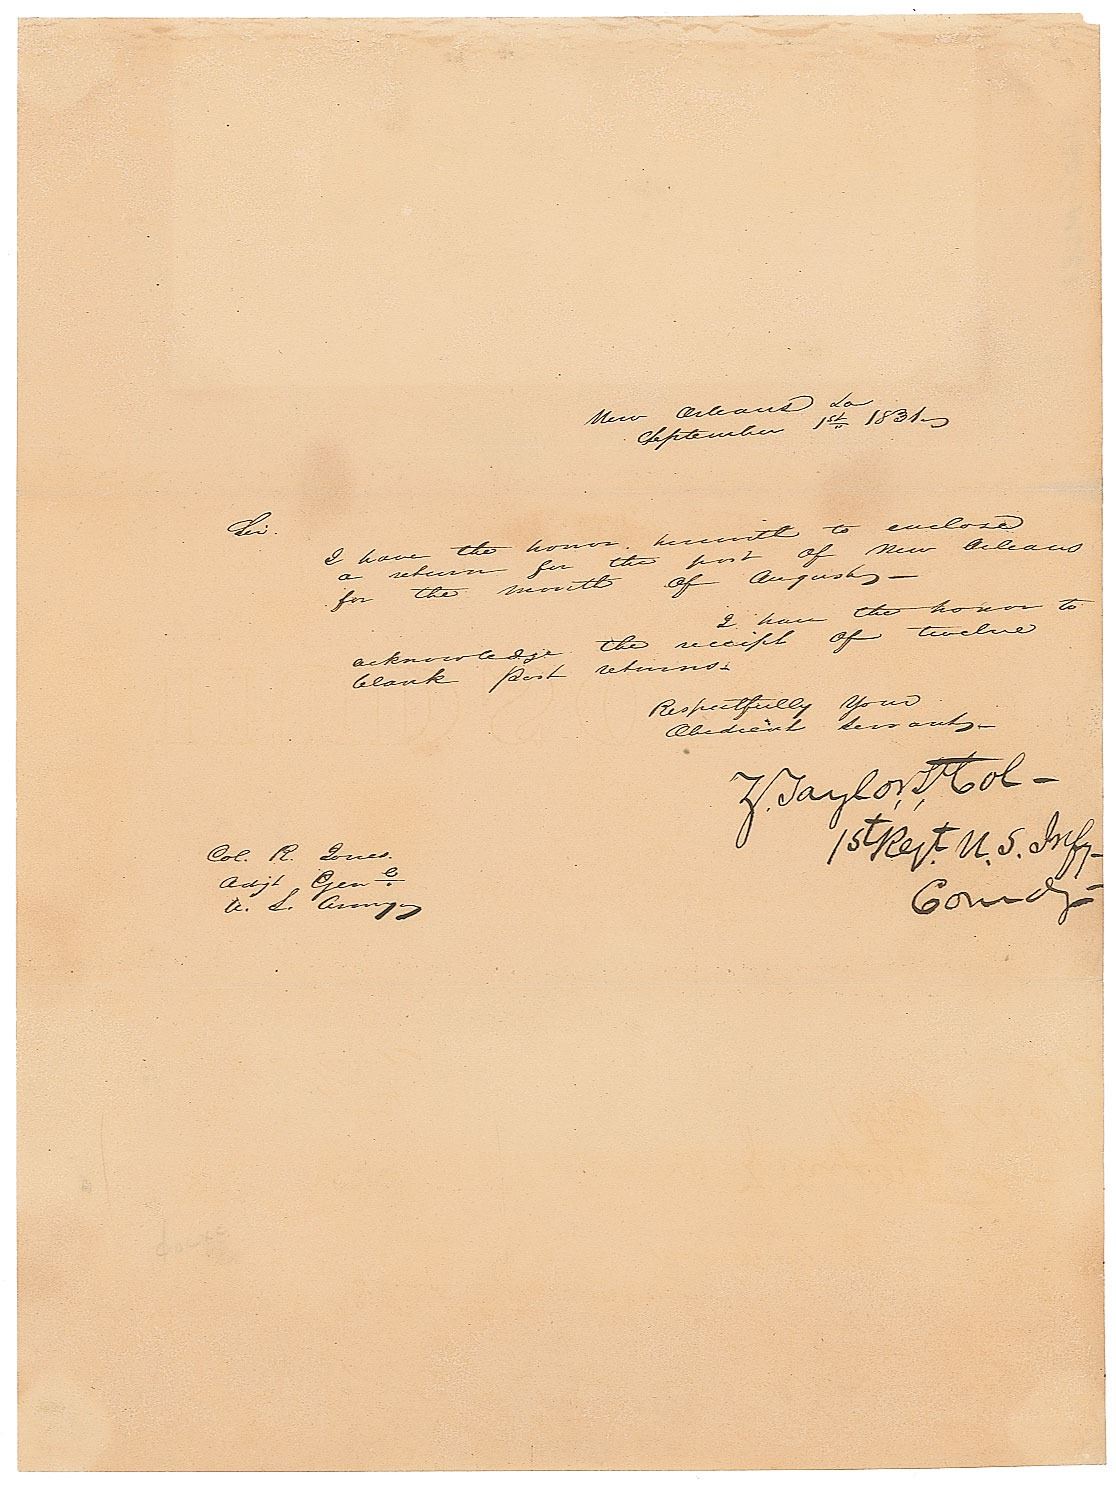 New Orleans La
September 1st 1831
Sir.
I have the honor herewith to enclose
a return for the post of New Orleans
for the month of August,—
I have the honor to
acknowledge the receipt of twelve
blank Post returns.
Respectfully Your
Obedient Servant,—
Z. Taylor, Lt Col —
1st Regt. U. S. Infy—
Comdg—
Col. R. Jones.
Adjt Genl
U. S. Army